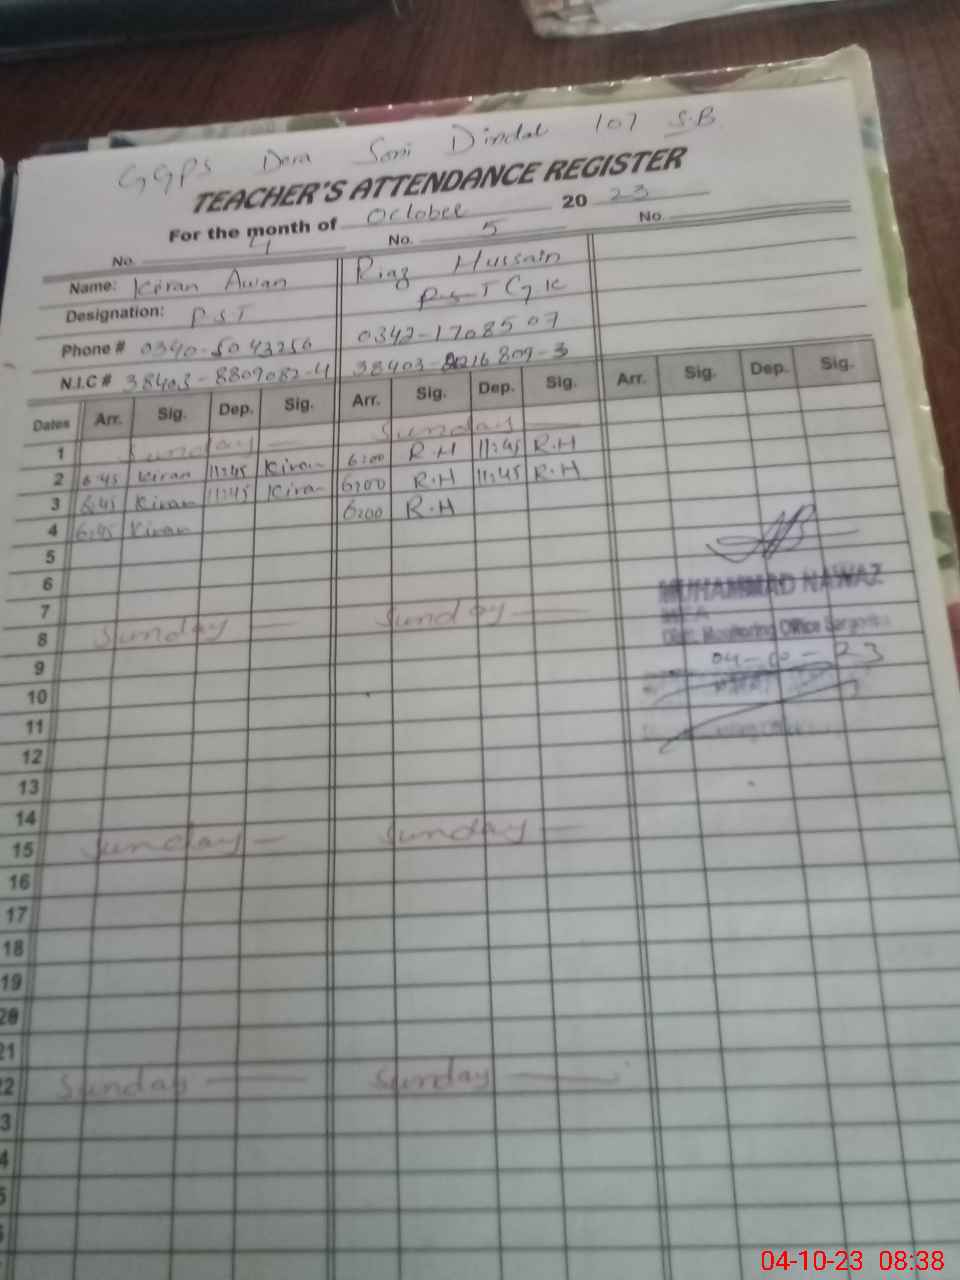 GGPS Dera Soni Dindal 107 S.B
TEACHER'S ATTENDANCE REGISTER
For the month of October 20 23
No. 4 No. 5 No.
Name: Kiran Awan Riaz Hussain
Designation: P.S.T
Phone # 0340-5043256 0342-1708507
N.I.C # 38403-8809082-4 38403-
Dates Arr. Sig. Dep. Sig. Arr. Sig. Dep. Sig. Arr. Sig. Dep. Sig.
1 Sunday Sunday
2 6:45 Kiran 11:45 Kiran 6:00 R.H 11:45 R.H
3 6:45 Kiran 11:45 Kiran 6:00 R.H 11:45 R.H
4 6:45 Kiran 6:00 R.H
5
6
MUHAMMAD NAWAZ
7
MEA
8 Sunday Sunday
Monitoring Office
9
04-10-23
10
11
12
13
14
15 Sunday Sunday
16
17
18
19
20
21
22 Sunday Sunday
04-10-23 08:38